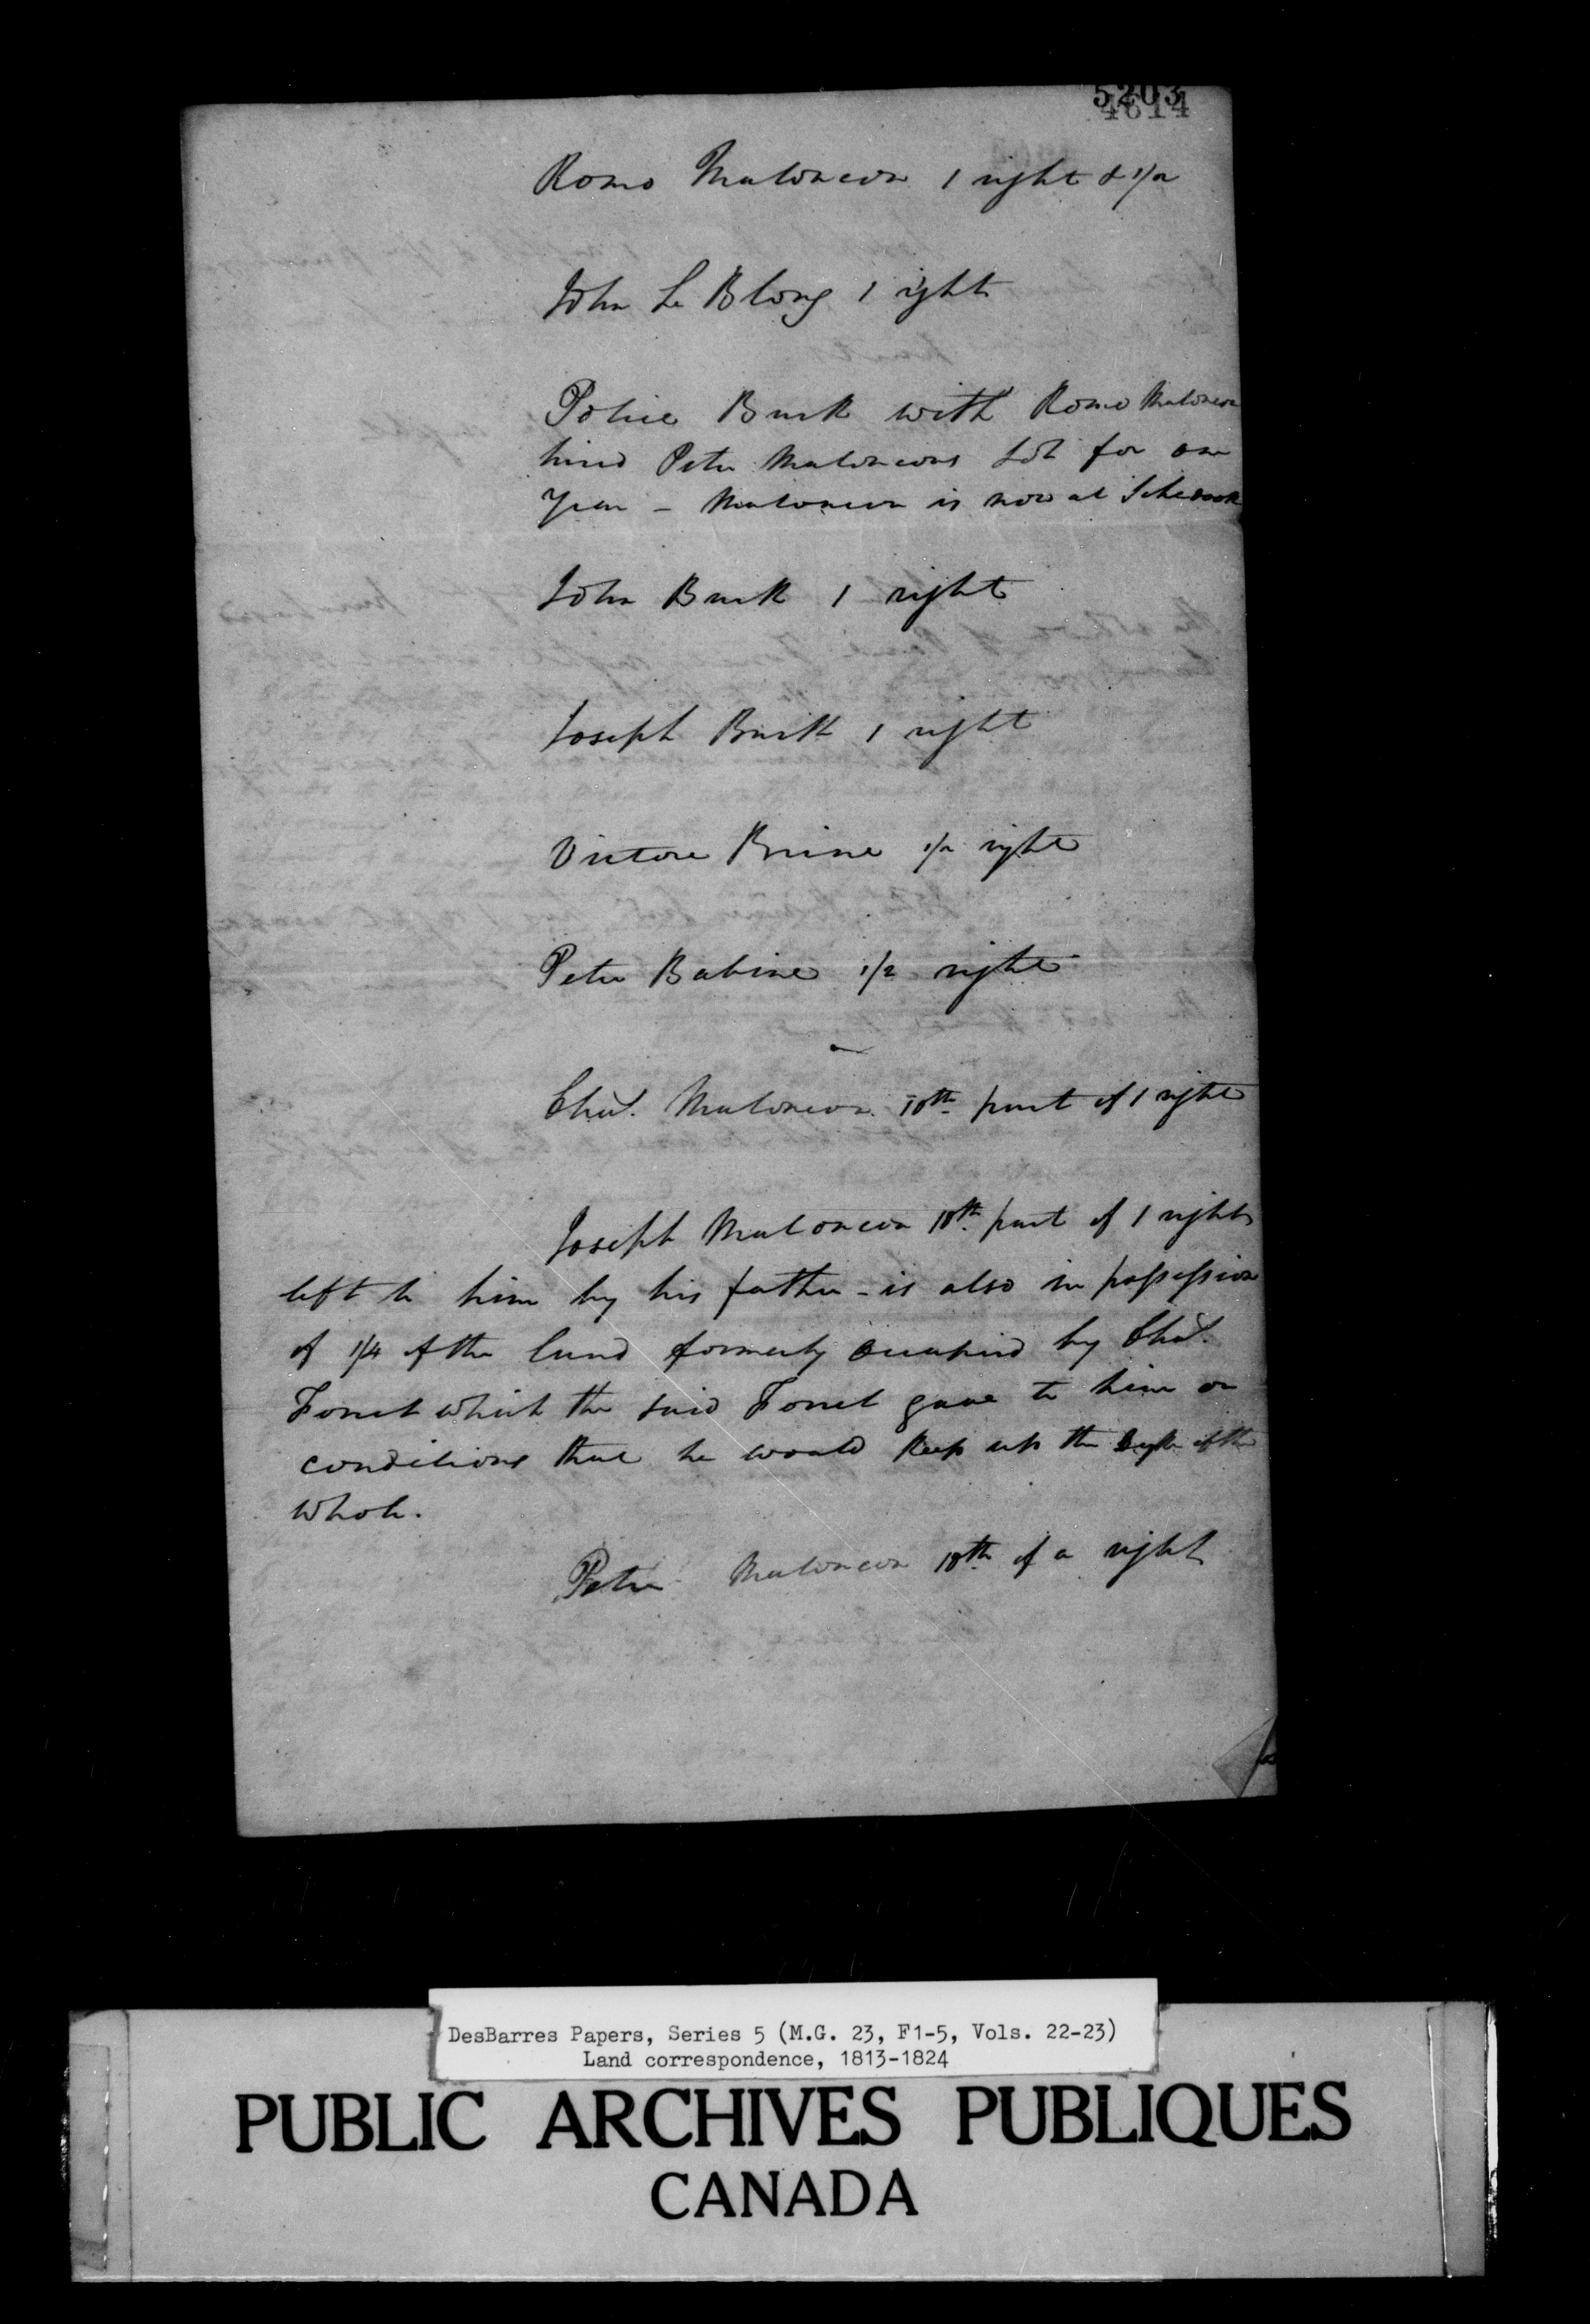 5203
4614
Romo Malonson 1 right & 1/2
John Le Blong 1 right
Police Burk with Romo Malonson
hired Peter Malonsons Lot for one
year - Malonson is now at Schedook
John Burk 1 right
Joseph Burk 1 right
Victore Brine 1/2 right
Peter Babine 1/2 right
Chas. Malonson 10th part of 1 right
Joseph Malonson 10th part of 1 right
left to him by his father - is also in possession
of 1/4 of the land formerly occupied by Chas.
Foret which the said Foret gave to him on
conditions that he would keep up the Dyke of the
whole.
Peter Malonson 10th of a right
DesBarres Papers, Series 5 (M.G. 23, F1-5, Vols. 22-23)
Land correspondence, 1813-1824
PUBLIC ARCHIVES PUBLIQUES
CANADA